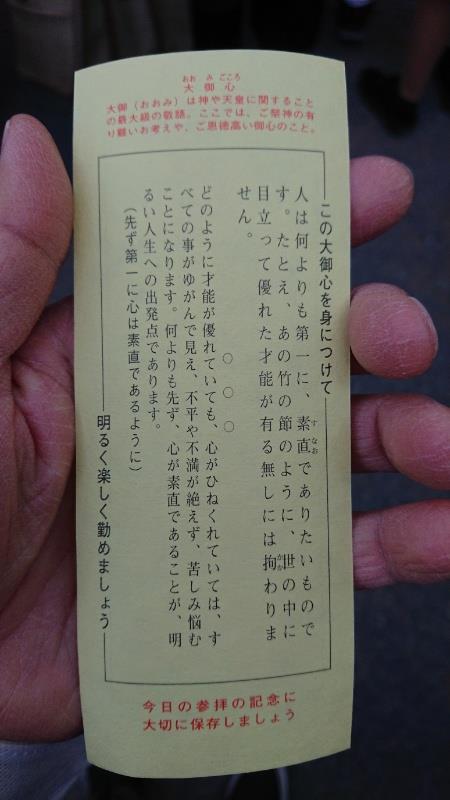 大御心
おおみごころ
大御（おおみ）は神や天皇に関すること
の最大級の敬語。ここでは、ご祭神の有
り難いお考えや、ご恩徳高い御心のこと。
この大御心を身につけて
人は何よりも第一に、素直でありたいもので
すなお
す。たとえ、あの竹の節のように、世の中に
目立って優れた才能が有る無しには拘わりま
せん。
○ ○ ○
どのように才能が優れていても、心がひねくれていては、す
べての事がゆがんで見え、不平や不満が絶えず、苦しみ悩む
ことになります。何よりも先ず、心が素直であることが、明
るい人生への出発点であります。
（先ず第一に心は素直であるように）
明るく楽しく勤めましょう
今日の参拝の記念に
大切に保存しましょう